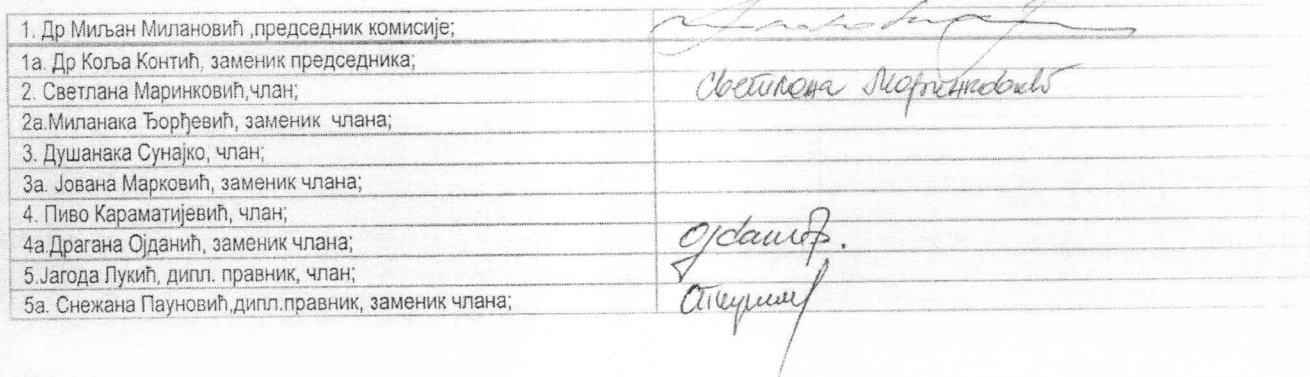 1. Др Миљан Милановић ,председник комисије;
1а. Др Коља Контић, заменик председника;
2. Светлана Маринковић,члан; Светлана Маринковић
2а.Миланака Ђорђевић, заменик члана;
3. Душанака Сунајко, члан;
3а. Јована Марковић, заменик члана;
4. Пиво Караматијевић, члан;
4а.Драгана Ојданић, заменик члана;
5.Јагода Лукић, дипл. правник, члан;
5а. Снежана Пауновић,дипл.правник, заменик члана;